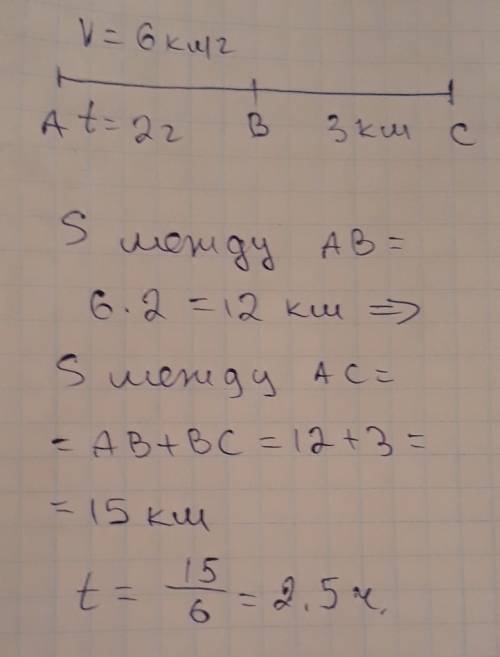 V = 6 км/г
A t = 2г B 3 км C
S между AB =
6 · 2 = 12 км =>
S между AC =
= AB + BC = 12 + 3 =
= 15 км
t = 15/6 = 2.5 ч.